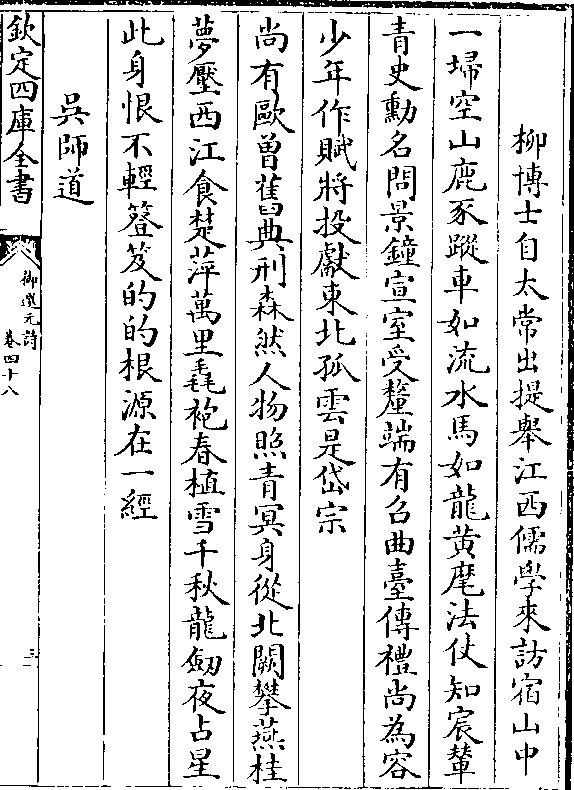 柳博士自太常出提舉江西儒學來訪宿山中
一埽空山鹿豕蹤車如流水馬如龍黄麾法仗知宸輦
青史勳名問景鐘宣室受釐端有召曲臺傳禮尚為容
少年作賦將投獻東北孤雲是岱宗
尚有歐曾舊典刑森然人物照青冥身從北闕攀燕桂
夢壓西江食楚萍萬里毳袍春植雪千秋龍劔夜占星
此身恨不輕簦笈的的根源在一經
吳師道
欽定四庫全書
御選元詩
卷四十八
三